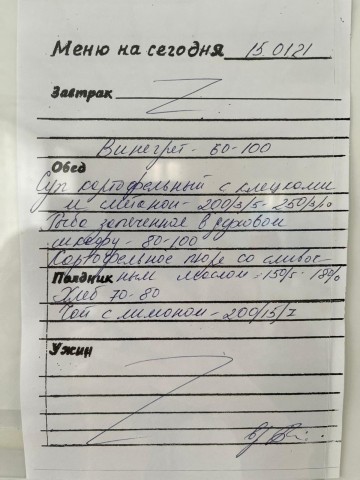 Меню на сегодня 15.0121
Завтрак
Винегрет - 60-100
Обед
Суп картофельный с клецками
и мясной - 200/3/5 - 250/3/10
Рыба запеченное в духовом
шкафу - 80-100
Картофельное пюре со сливоч
Полдник ным маслом - 150/5 - 180/
Хлеб 70-80
Чай с лимоном - 200/15/7
Ужин